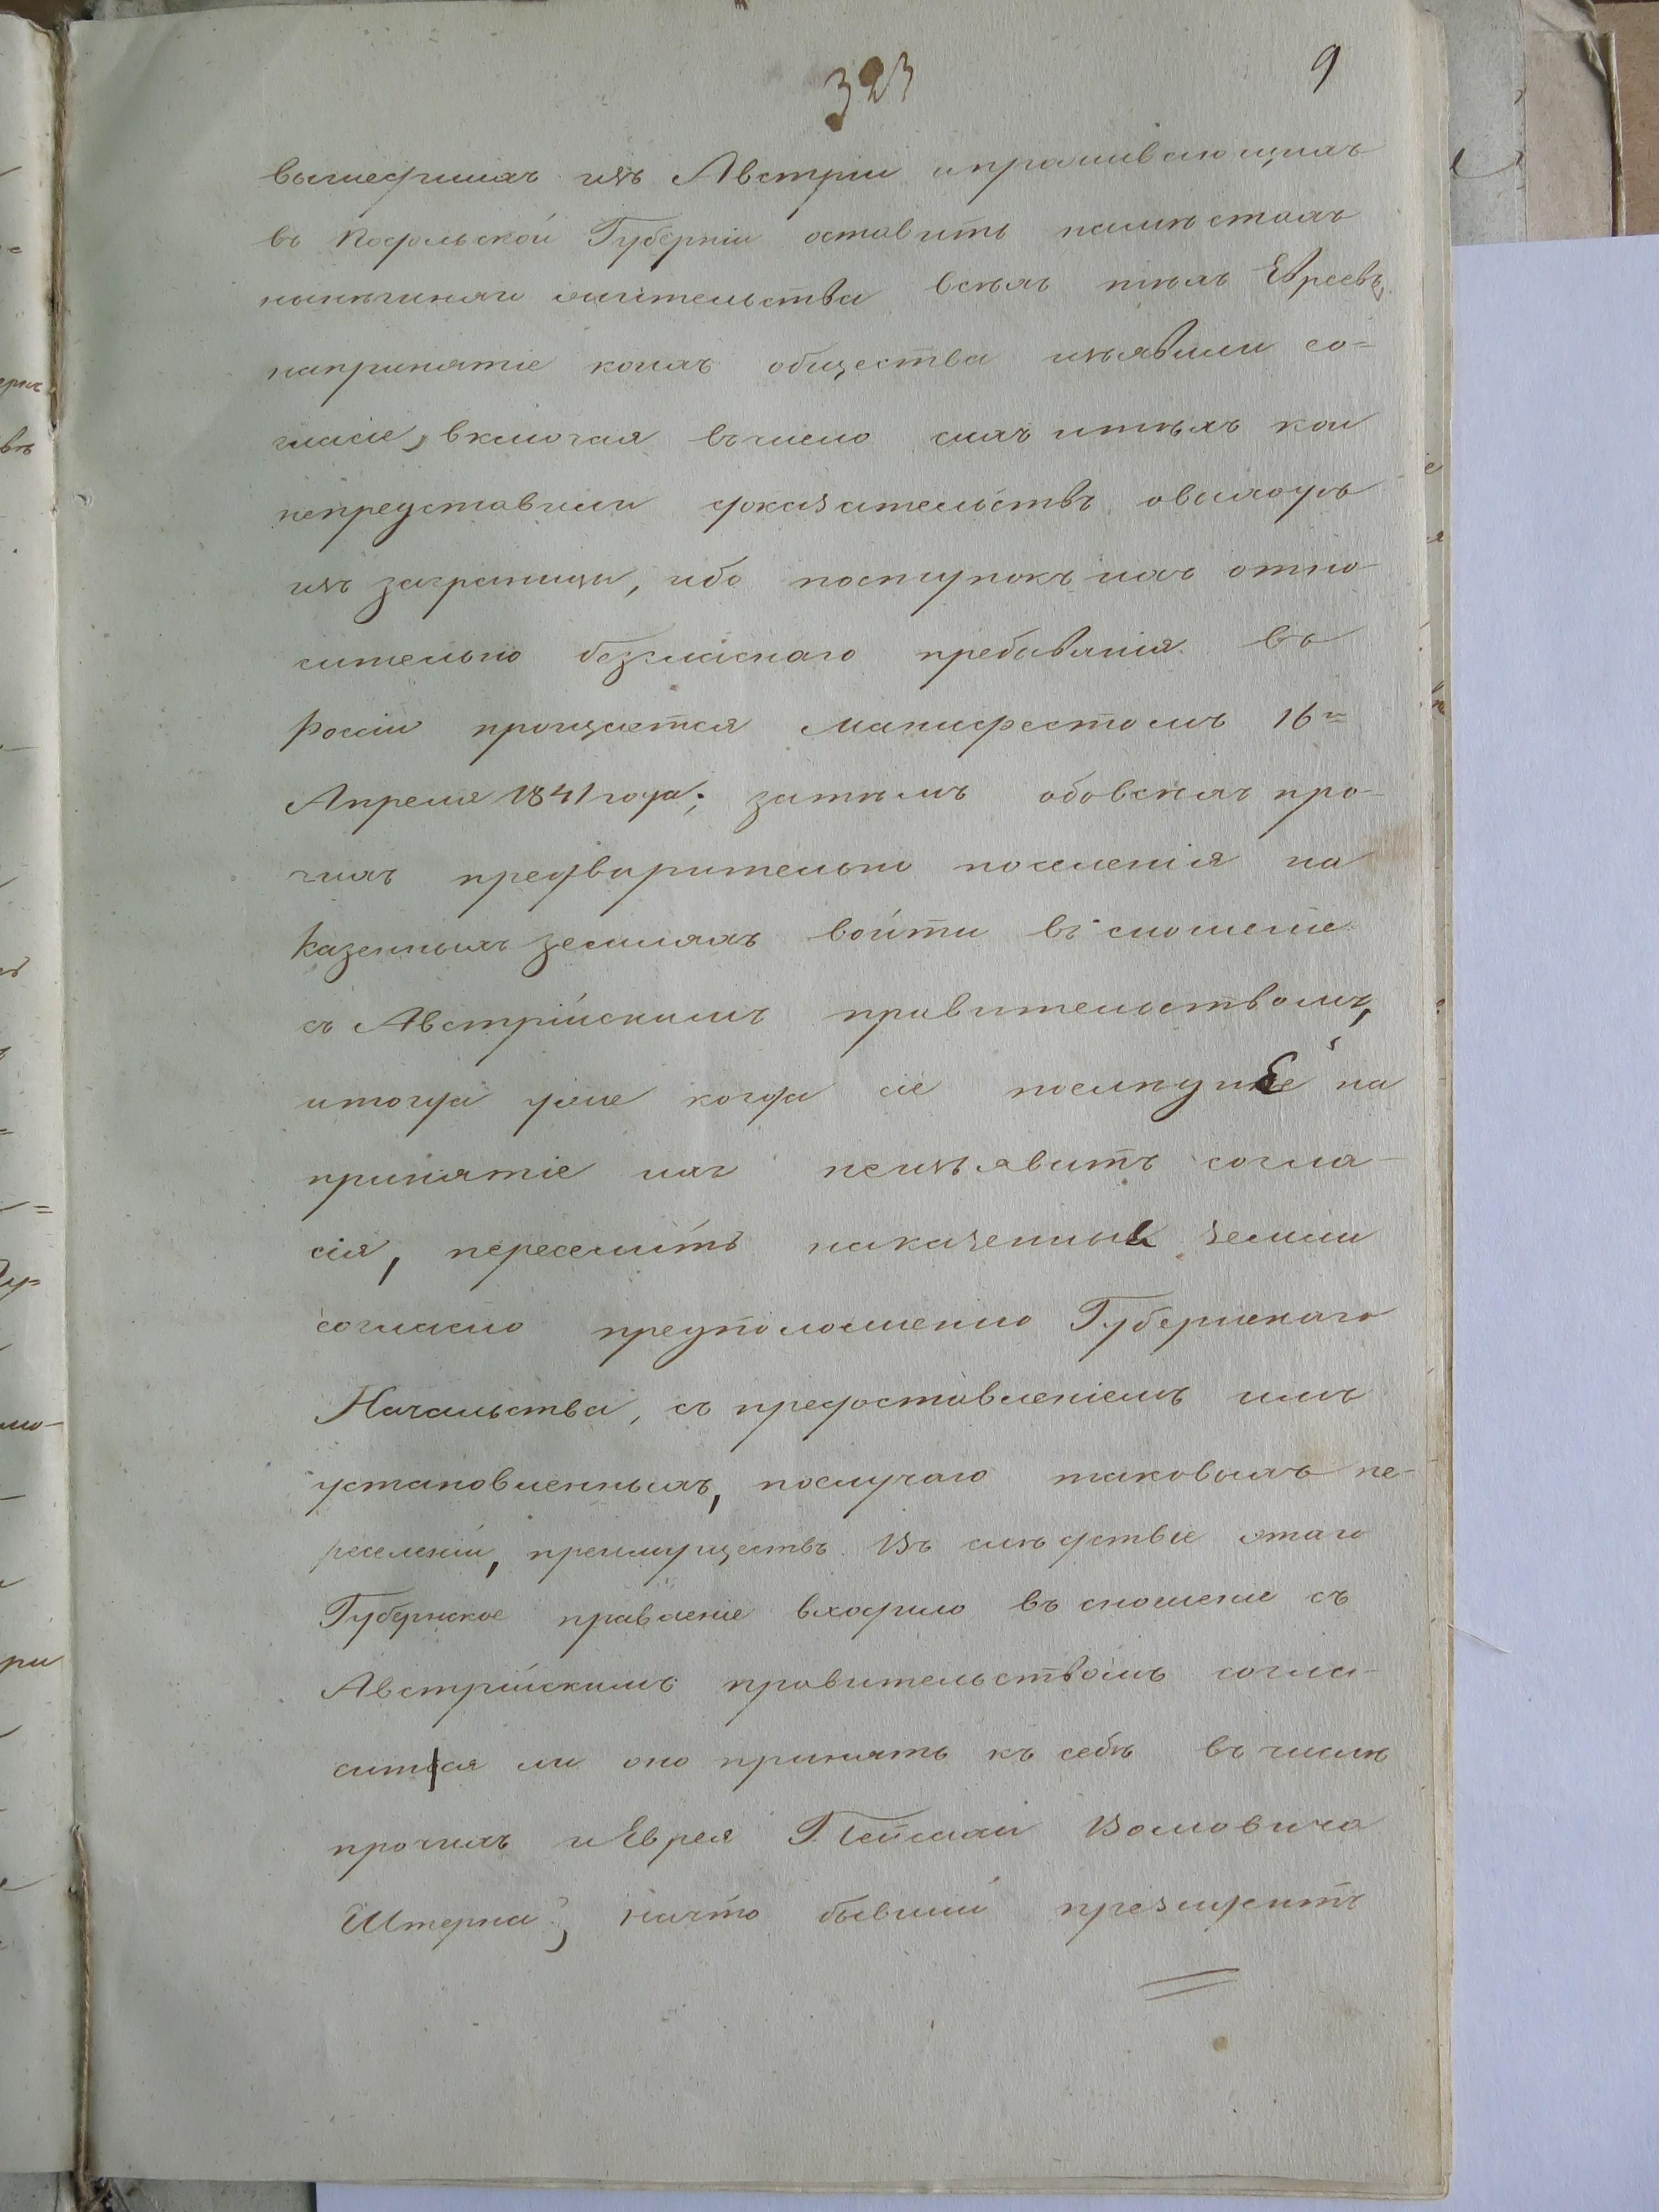 323
9
вышедшихъ изъ Австріи ипроживающихъ
въ Подольской Губерніи оставить наместахъ
нынѣшняго жительства всѣхъ тѣхъ Евреевъ,
напринятіе коихъ общества изъявили со=
гласіе, включая въчисло сихъ итѣхъ кои
непредставили доказательствъ овыходѣ
изъ заграницы, ибо поступокъ ихъ отно-
сительно безгласнаго пребыванія въ
Россіи прощается Манифестомъ 16го
Апреля 1841 года; затѣмъ обовсѣхъ про-
чихъ предварительно поселенія на
Казенныхъ земляхъ войти въ сношеніе
съ Австрійскимъ правительствомъ,
итогда уже когда сіе последнее на
принятіе ихъ неизъявитъ согла-
сія, переселить наказенныя земли
согласно предположенію Губернскаго
Начальства, съ предоставленіемъ имъ
установленныхъ, послучаю таковыхъ пе-
реселеній, преимуществъ. Въ слѣдствіе этаго
Губернское правленіе входило въ сношеніе съ
Австрійскимъ правительствомъ согла-
ситься ли оно принять къ себѣ въ числѣ
прочихъ иЕврея Воловича
Штерна, начто бывшій президентъ